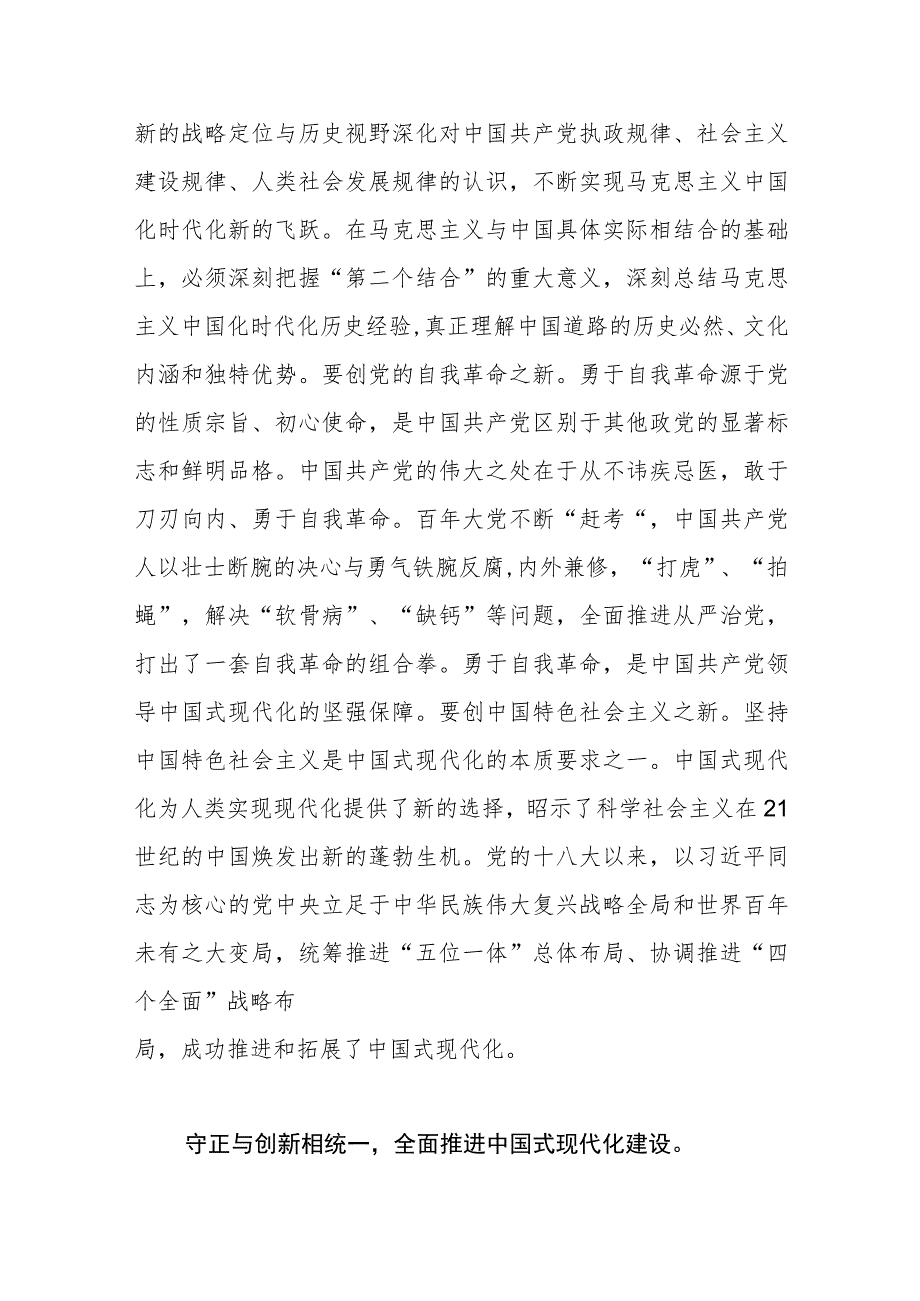 新的战略定位与历史视野深化对中国共产党执政规律、社会主义
建设规律、人类社会发展规律的认识，不断实现马克思主义中国
化时代化新的飞跃。在马克思主义与中国具体实际相结合的基础
上，必须深刻把握“第二个结合”的重大意义，深刻总结马克思
主义中国化时代化历史经验,真正理解中国道路的历史必然、文化
内涵和独特优势。要创党的自我革命之新。勇于自我革命源于党
的性质宗旨、初心使命，是中国共产党区别于其他政党的显著标
志和鲜明品格。中国共产党的伟大之处在于从不讳疾忌医，敢于
刀刃向内、勇于自我革命。百年大党不断“赶考“，中国共产党
人以壮士断腕的决心与勇气铁腕反腐,内外兼修，“打虎”、“拍
蝇”，解决“软骨病”、“缺钙”等问题，全面推进从严治党，
打出了一套自我革命的组合拳。勇于自我革命，是中国共产党领
导中国式现代化的坚强保障。要创中国特色社会主义之新。坚持
中国特色社会主义是中国式现代化的本质要求之一。中国式现代
化为人类实现现代化提供了新的选择，昭示了科学社会主义在21
世纪的中国焕发出新的蓬勃生机。党的十八大以来，以习近平同
志为核心的党中央立足于中华民族伟大复兴战略全局和世界百年
未有之大变局，统筹推进“五位一体”总体布局、协调推进“四
个全面”战略布
局，成功推进和拓展了中国式现代化。
守正与创新相统一，全面推进中国式现代化建设。